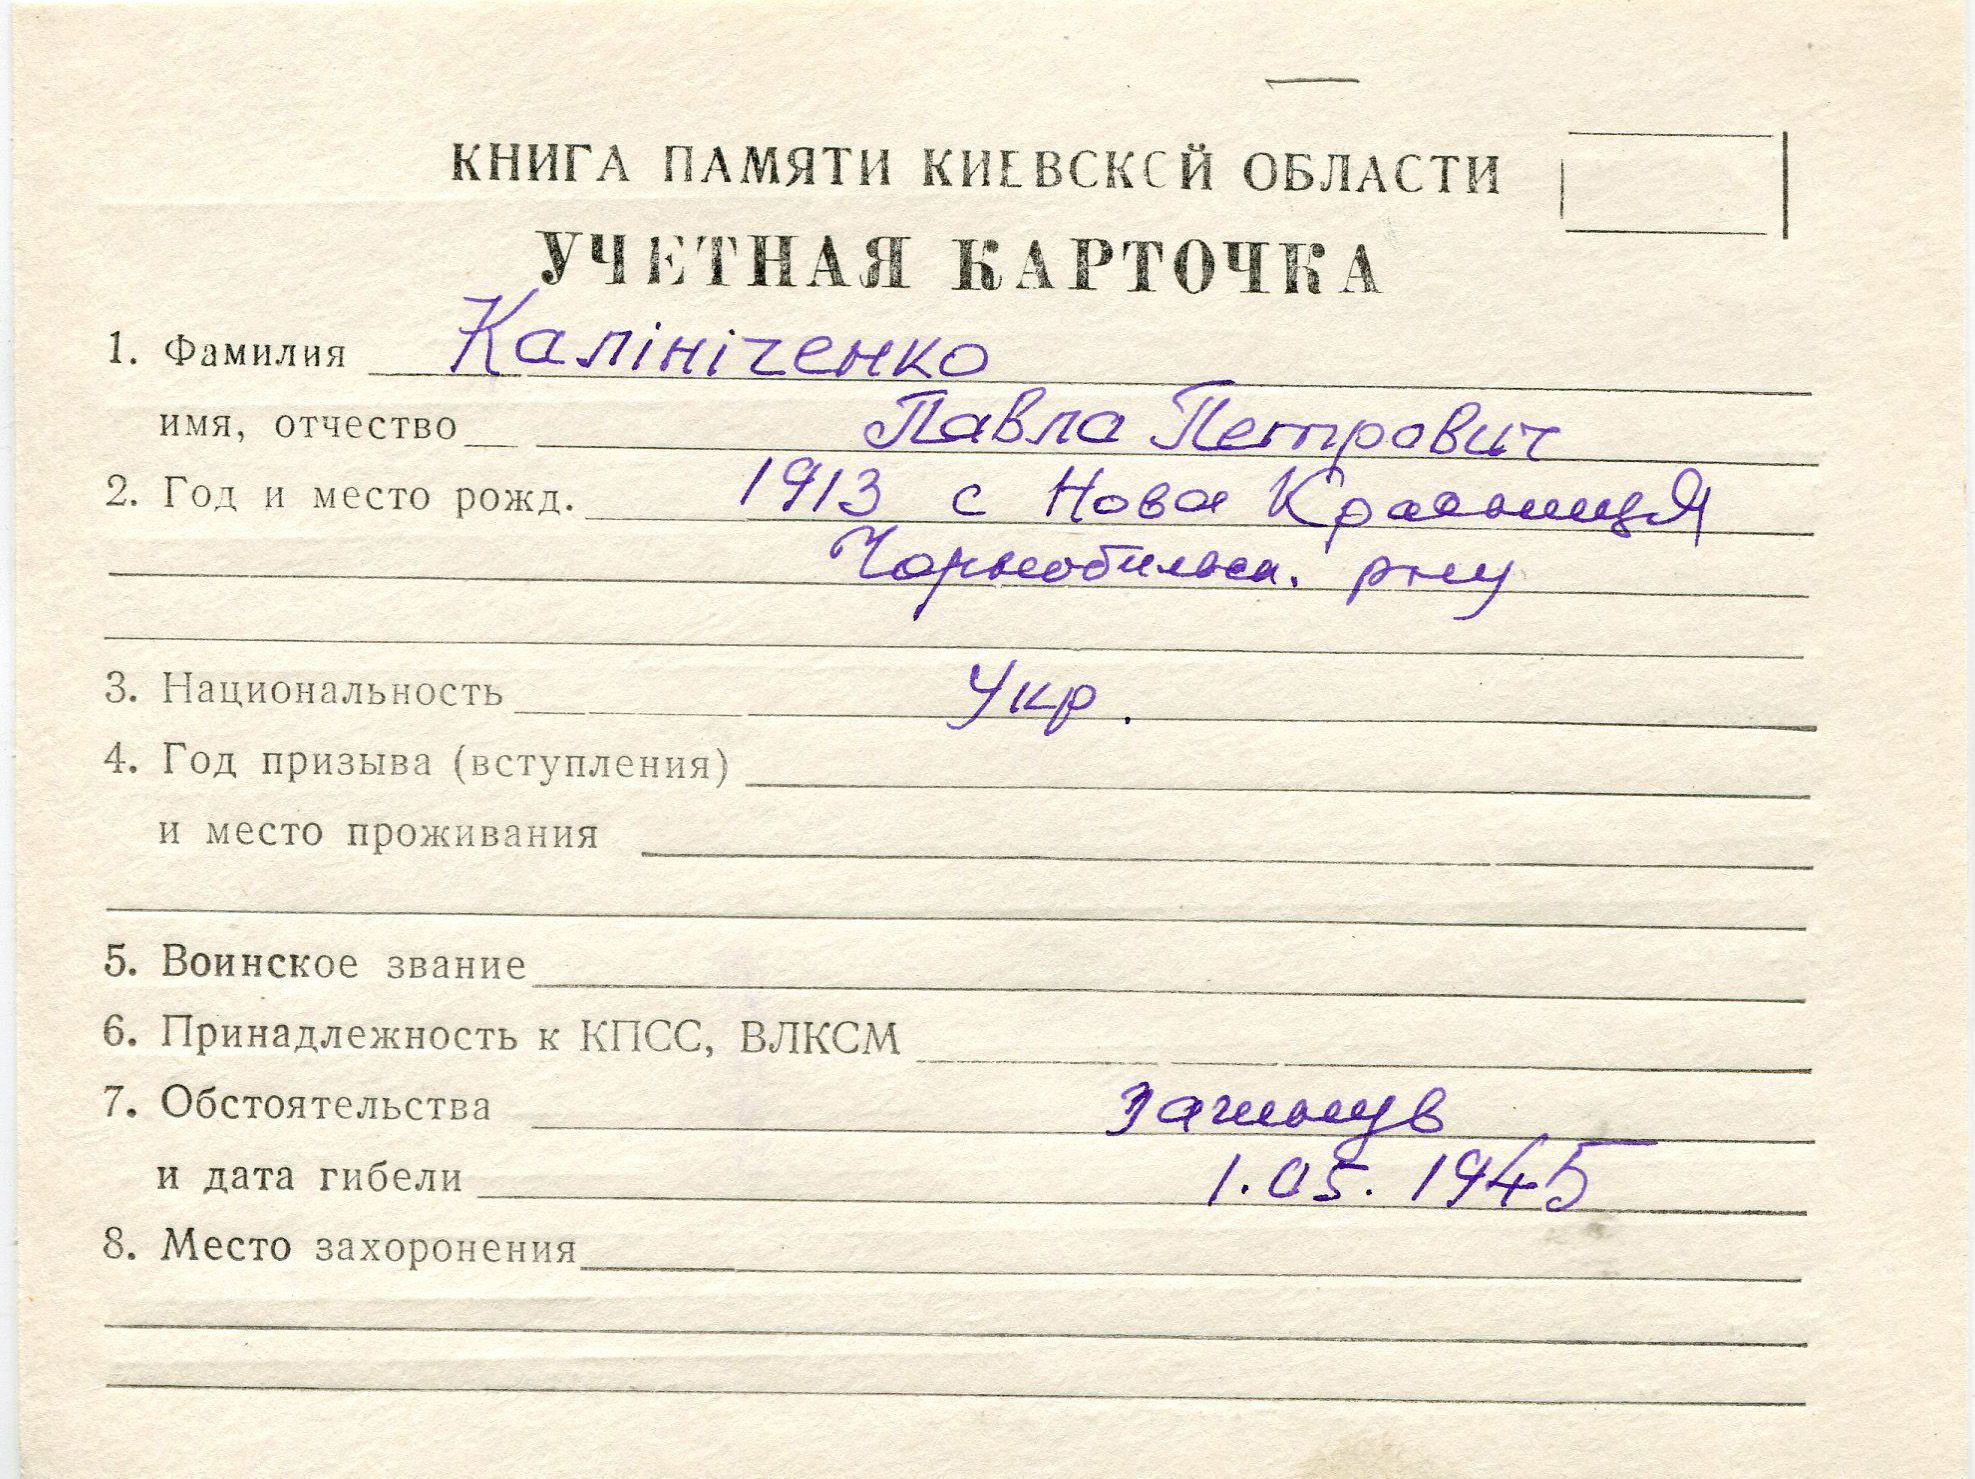 КНИГА ПАМЯТИ КИЕВСКСЙ ОБЛАСТИ
УЧЕТНАЯ КАРТОЧКА
1. Фамилия Калініченко
имя, отчество Павло Петрович
2. Год и место рожд. 1913 с Нова Красниця
Чорнобильськ. р-ну
3. Национальность Укр.
4. Год призыва (вступления)
и место проживания
5. Воинское звание
6. Принадлежность к КПСС, ВЛКСМ
7. Обстоятельства загинув
и дата гибели 1.05.1945
8. Место захоронения